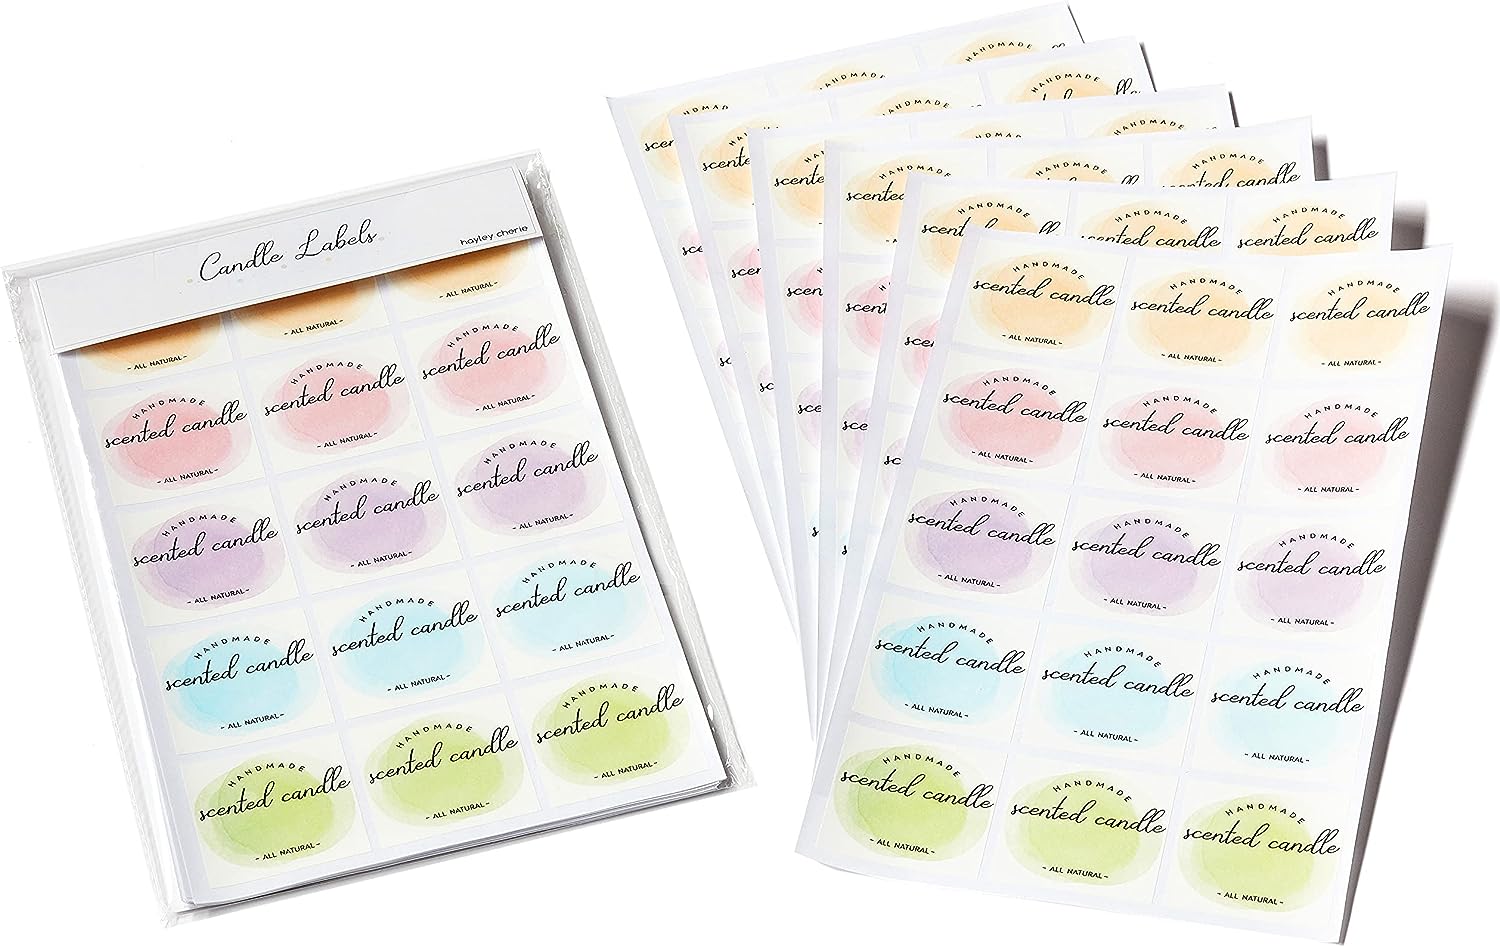 Candle Labels
hayley cherie
- ALL NATURAL -
- ALL NATURAL -
- ALL NATURAL -
HANDMADE
scented candle
- ALL NATURAL -
HANDMADE
scented candle
- ALL NATURAL -
HANDMADE
scented candle
- ALL NATURAL -
HANDMADE
scented candle
- ALL NATURAL -
HANDMADE
scented candle
- ALL NATURAL -
HANDMADE
scented candle
- ALL NATURAL -
HANDMADE
scented candle
- ALL NATURAL -
HANDMADE
scented candle
- ALL NATURAL -
HANDMADE
scented candle
- ALL NATURAL -
HANDMADE
scented candle
- ALL NATURAL -
HANDMADE
scented candle
- ALL NATURAL -
HANDMADE
scented candle
- ALL NATURAL -
HANDMADE
HANDMADE
HANDMADE
HANDMADE
HANDMADE
HANDMADE
HANDMADE
HANDMADE
HANDMADE
HANDMADE
scented candle
HANDMADE
HANDMADE
scented candle
HANDMADE
scented candle
HANDMADE
scented candle
- ALL NATURAL -
HANDMADE
scented candle
- ALL NATURAL -
HANDMADE
scented candle
- ALL NATURAL -
HANDMADE
scented candle
- ALL NATURAL -
HANDMADE
scented candle
- ALL NATURAL -
HANDMADE
scented candle
- ALL NATURAL -
HANDMADE
scented candle
- ALL NATURAL -
HANDMADE
scented candle
- ALL NATURAL -
HANDMADE
scented candle
- ALL NATURAL -
HANDMADE
scented candle
- ALL NATURAL -
HANDMADE
scented candle
- ALL NATURAL -
HANDMADE
scented candle
- ALL NATURAL -
HANDMADE
scented candle
- ALL NATURAL -
HANDMADE
scented candle
- ALL NATURAL -
HANDMADE
scented candle
- ALL NATURAL -